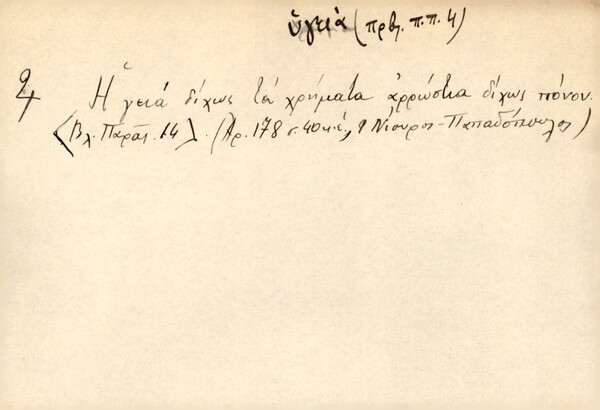 ὑγειά (πρβ. π.π. 4)
2/ Ἡ γειά δίχως τά χρήματα ἀρρώστια δίχως πόνον.
<Βλ. Παρατ. 14>. (Ἀρ. 178 σ. 40 Νίσυρος - Παπαδόπουλος)